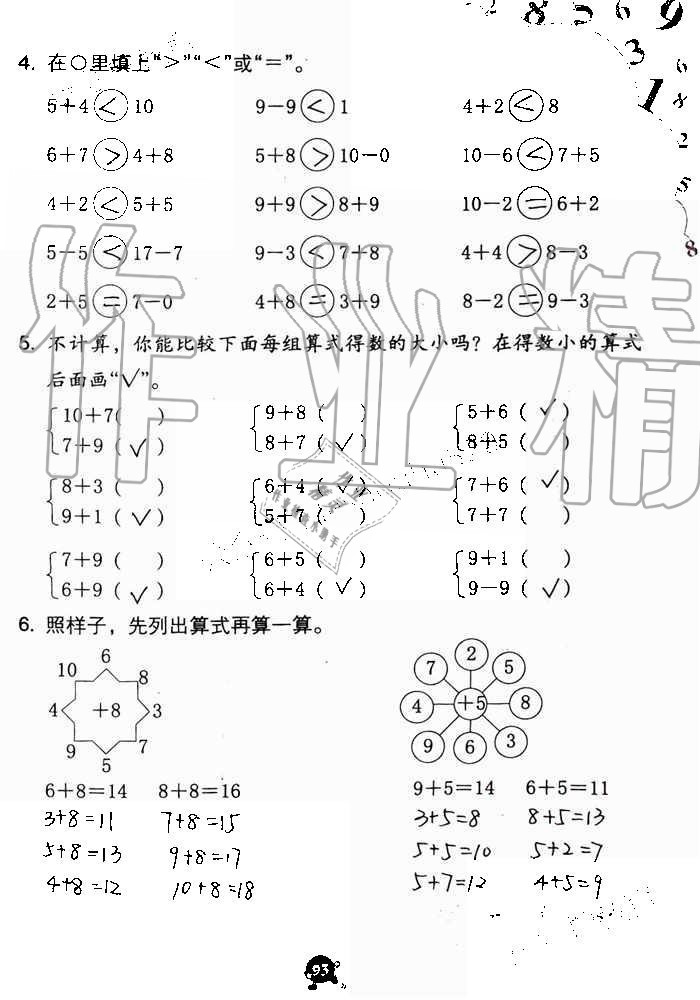 2 8 5 6 9
3
1 6
8
2
5
8
4. 在○里填上“＞”“＜”或“＝”。
5+4 < 10 9-9 < 1 4+2 < 8
6+7 > 4+8 5+8 > 10-0 10-6 < 7+5
4+2 < 5+5 9+9 > 8+9 10-2 = 6+2
5-5 < 17-7 9-3 < 7+8 4+4 > 8-3
2+5 = 7-0 4+8 = 3+9 8-2 = 9-3
5. 不计算，你能比较下面每组算式得数的大小吗？在得数小的算式
后面画“√”。
10+7( ) 9+8 ( ) 5+6 ( √ )
7+9 ( √ ) 8+7 ( √ ) 8+5 ( )
8+3 ( ) 6+4 ( √ ) 7+6 ( √ )
9+1 ( √ ) 5+7 ( ) 7+7 ( )
7+9 ( ) 6+5 ( ) 9+1 ( )
6+9 ( √ ) 6+4 ( √ ) 9-9 ( √ )
6. 照样子，先列出算式再算一算。
6
10 8
4 +8 3
9 7
5
2
7 5
4 +5 8
9 6 3
6+8=14 8+8=16 9+5=14 6+5=11
3+8=11 7+8=15 3+5=8 8+5=13
5+8=13 9+8=17 5+5=10 5+2=7
4+8=12 10+8=18 5+7=12 4+5=9
93
作业精